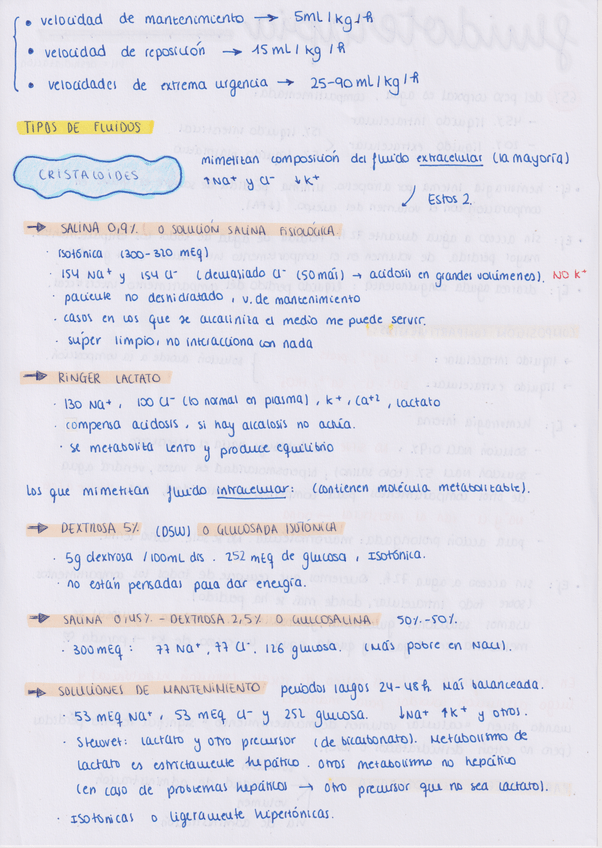 • velocidad de mantenimiento → 5mL/kg/h
• velocidad de reposición → 15mL/kg/h
• velocidades de extrema urgencia → 25-90mL/kg/h
TIPOS DE FLUIDOS
CRISTALOIDES
mimetizan composición del fluido extracelular (la mayoría)
↑Na+ y Cl- ↓K+
Estos 2.
→ SALINA 0,9% O SOLUCIÓN SALINA FISIOLÓGICA
· Isotónica (300-320 mEq)
· 154 Na+ y 154 Cl- (demasiado Cl- (50 más) → acidosis en grandes volúmenes). NO K+
· paciente no deshidratado, v. de mantenimiento
· casos en los que se alcaliniza el medio me puede servir.
· súper limpio, no interacciona con nada
→ RINGER LACTATO
· 130 Na+, 100 Cl- (lo normal en plasma), K+, Ca+2, lactato
· compensa acidosis, si hay alcalosis no actúa.
· se metaboliza lento y produce equilibrio
Los que mimetizan fluido intracelular: (contienen molécula metabolizable).
→ DEXTROSA 5% (D5W) O GLUCOSADA ISOTÓNICA
· 5g dextrosa /100mL dis. 252 mEq de glucosa, Isotónica.
· no están pensadas para dar energía.
→ SALINA 0,45% - DEXTROSA 2,5% O GLUCOSALINA 50%-50%
· 300mEq: 77 Na+, 77 Cl-, 126 glucosa. (más pobre en NaCl).
→ SOLUCIONES DE MANTENIMIENTO periodos largos 24-48h Más balanceada.
· 53 mEq Na+, 53 mEq Cl- y 252 glucosa. ↓Na+ ↑K+ y otros.
· Sterovet: lactato y otro precursor (de bicarbonato). Metabolismo de
lactato es estrictamente hepático. otros metabolismo no hepático
(en caso de problemas hepáticos → otro precursor que no sea lactato).
· Isotónicas o ligeramente hipertónicas.